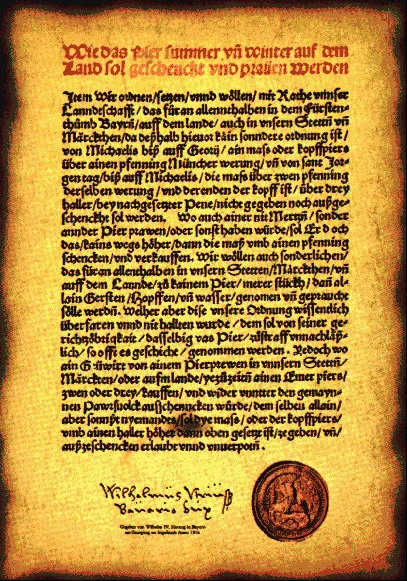 Wie das Pier summer vñ winter auf dem
Land sol geschenckt vnd prauen werden
Item Wir ordnen/setzen/vnnd wöllen/mit Rathe vnnser
Lanndtschafft/das für an allennthalben in dem Fürsten-
thůmb Bayrn/auff dem lande/auch in vnsern Stettñ vñ
Märckthen/da deßhalb hieuor kain sonndere ordnung ist/
von Michaelis biß auff Georij/ain mass oder kopffpiers
über ainen pfenning Müncher werung/vñ von sant Jor-
gen tag/biß auff Michaelis/die mass über zwen pfenning
derselben werung/vnd derenden der kopff ist/über drey
haller/bey nachgesetzter Pene/nicht gegeben noch außge-
schenckht sol werden. Wo auch ainer nit Mertzñ/sonder
annder Pier prawen/oder sonst haben würde/sol Er d och
das/kains wegs höher/dann die maß vmb ainen pfenning
schencken/vnd verkauffen. Wir wöllen auch sonderlichen/
das für an allenthalben in vnsern Stetten/Märckthen/vñ
auff dem Lannde/zů kainem Pier/merer stückh/dañ al-
lain Gersten/Hopffen/vñ wasser/genomen vñ gepraucht
sölle werdñ. Welher aber dise vnsere Ordnung wissendlich
überfaren vnnd nit hallten wurde/dem sol von seiner ge-
richtzöbrigkait/dasselbig vas Pier/zůstraff vnnachläß-
lich/so offt es geschicht/genommen werden. Jedoch wo
ain Gůwirt von ainem Pierprewen in vnnsern Stettñ/
Märckten/oder aufm lande/yezůzeitñ ainen Emer piers/
zwen oder drey/kauffen/vnd wider vnntter den gemayn-
nen Pawrsuolck ausschenncken würde/dem selben allain/
aber sonnst nyemandts/sol dye mass/oder der kopffpiers/
vmb ainen haller höher dann oben gesetzt ist/ze geben/vñ/
außzeschencken erlaubt vnnd vnuerpotñ.
Gegeben von Wilhelm IV. Herzog in Bayern
am Georgitag zu Ingolstadt Anno 1516